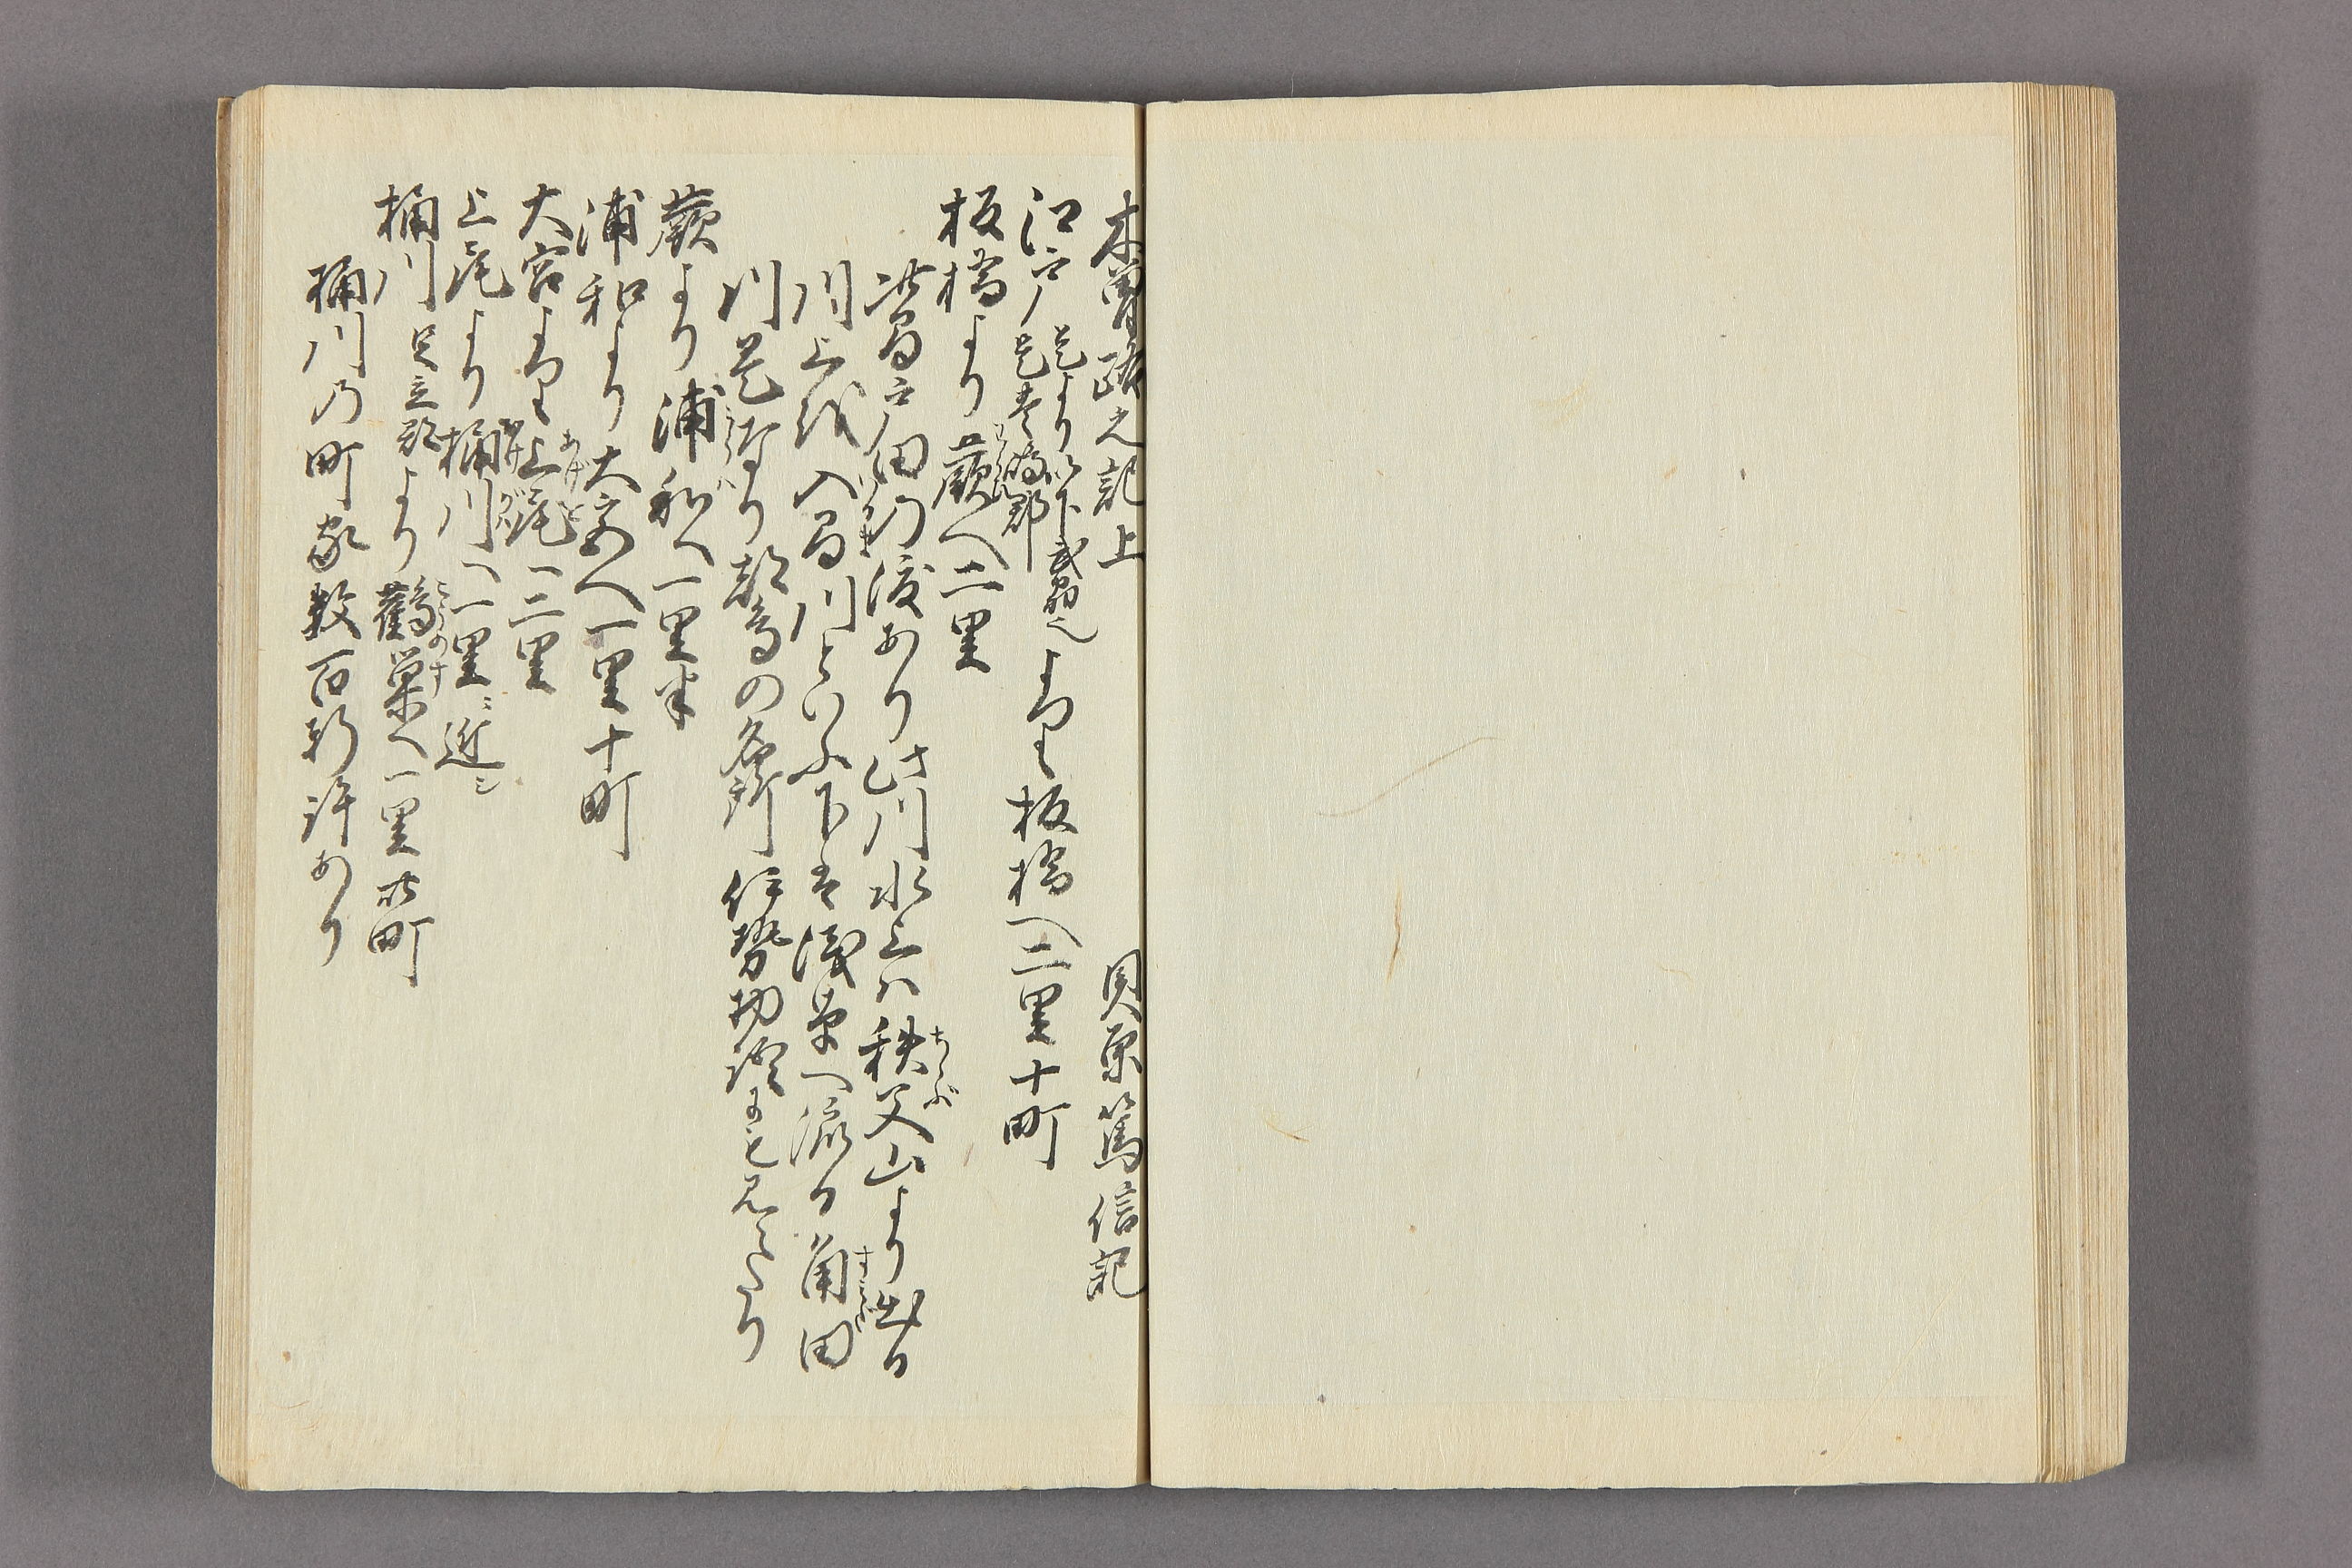 木曽路之記上 貝原篤信記
江戸 是より以下武州也 是豊嶋郡 より板橋へ二里十町
板橋より蕨へ二里
此間戸田河渡あり此川水上ハ秩父山より出る
川上を入間川といふ下は浅草へ流る角田
川是なり都鳥の名所伊勢物語にも見えたり
蕨より浦和へ一里半
浦和より大宮へ一里十町
大宮より上尾へ二里
上尾より桶川へ一里ニ近シ
桶川 足立郡 より鸛巣へ一里廿町
桶川乃町家数百軒許あり